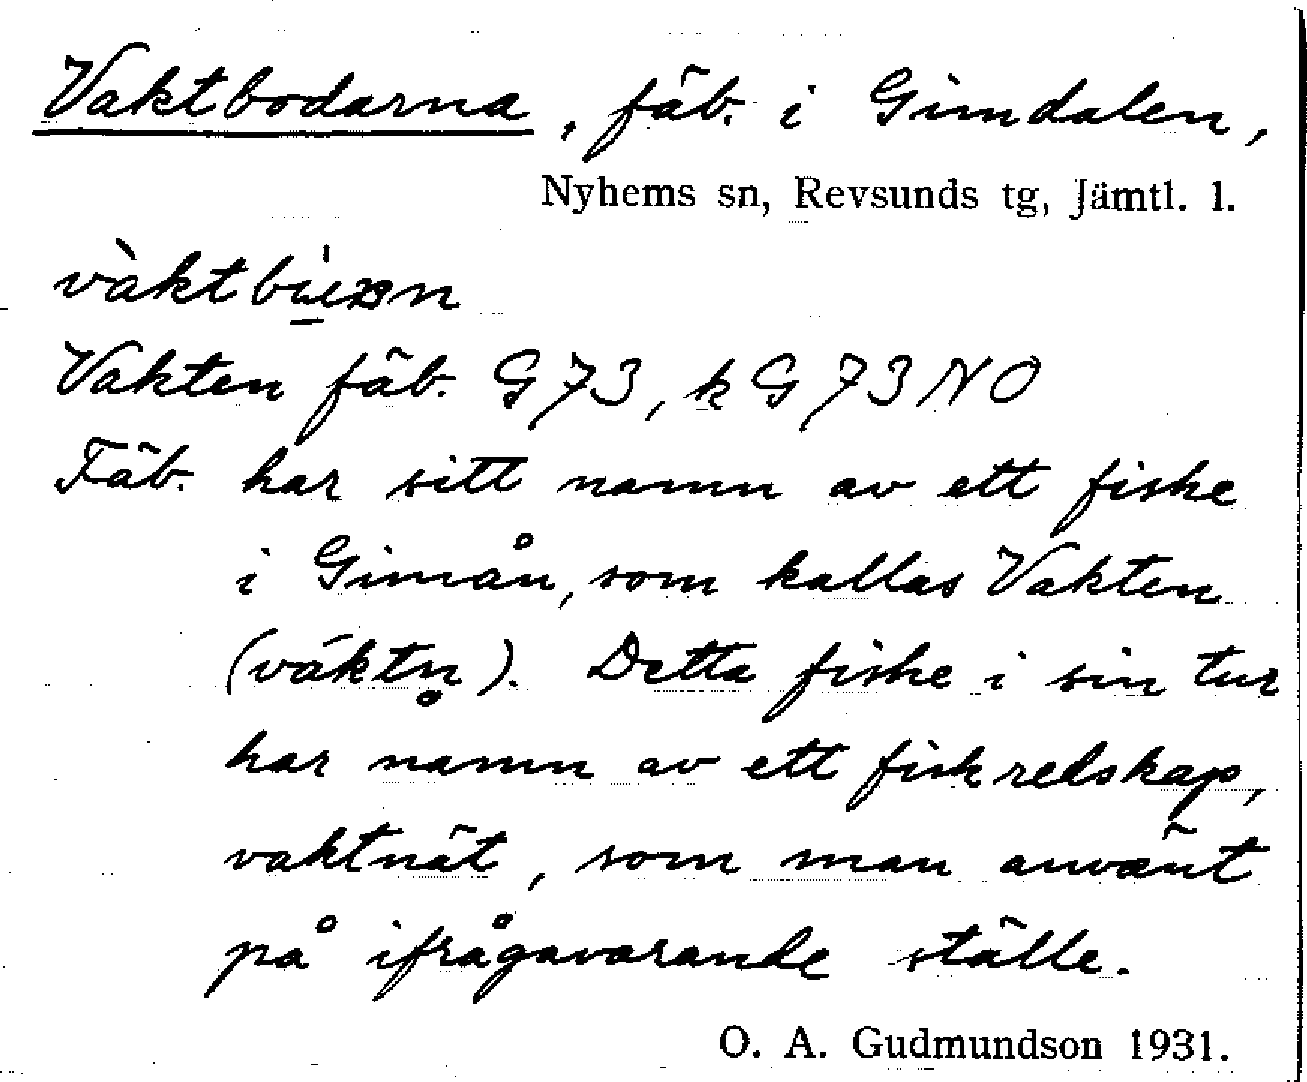 Vaktbodarna, fäb. i Gimdalen,
Nyhems sn, Revsunds tg, Jämtl. l.
Vakten fäb. G73, k G73NO
Fäb. har sitt namn av ett fiske
i Gimån, som kallas Vakten
(váktn̥). Detta fiske i sin tur
har namn av ett fiskredskap,
vaktnät, som man använt
på ifrågavarande ställe.
O. A. Gudmundson 1931.